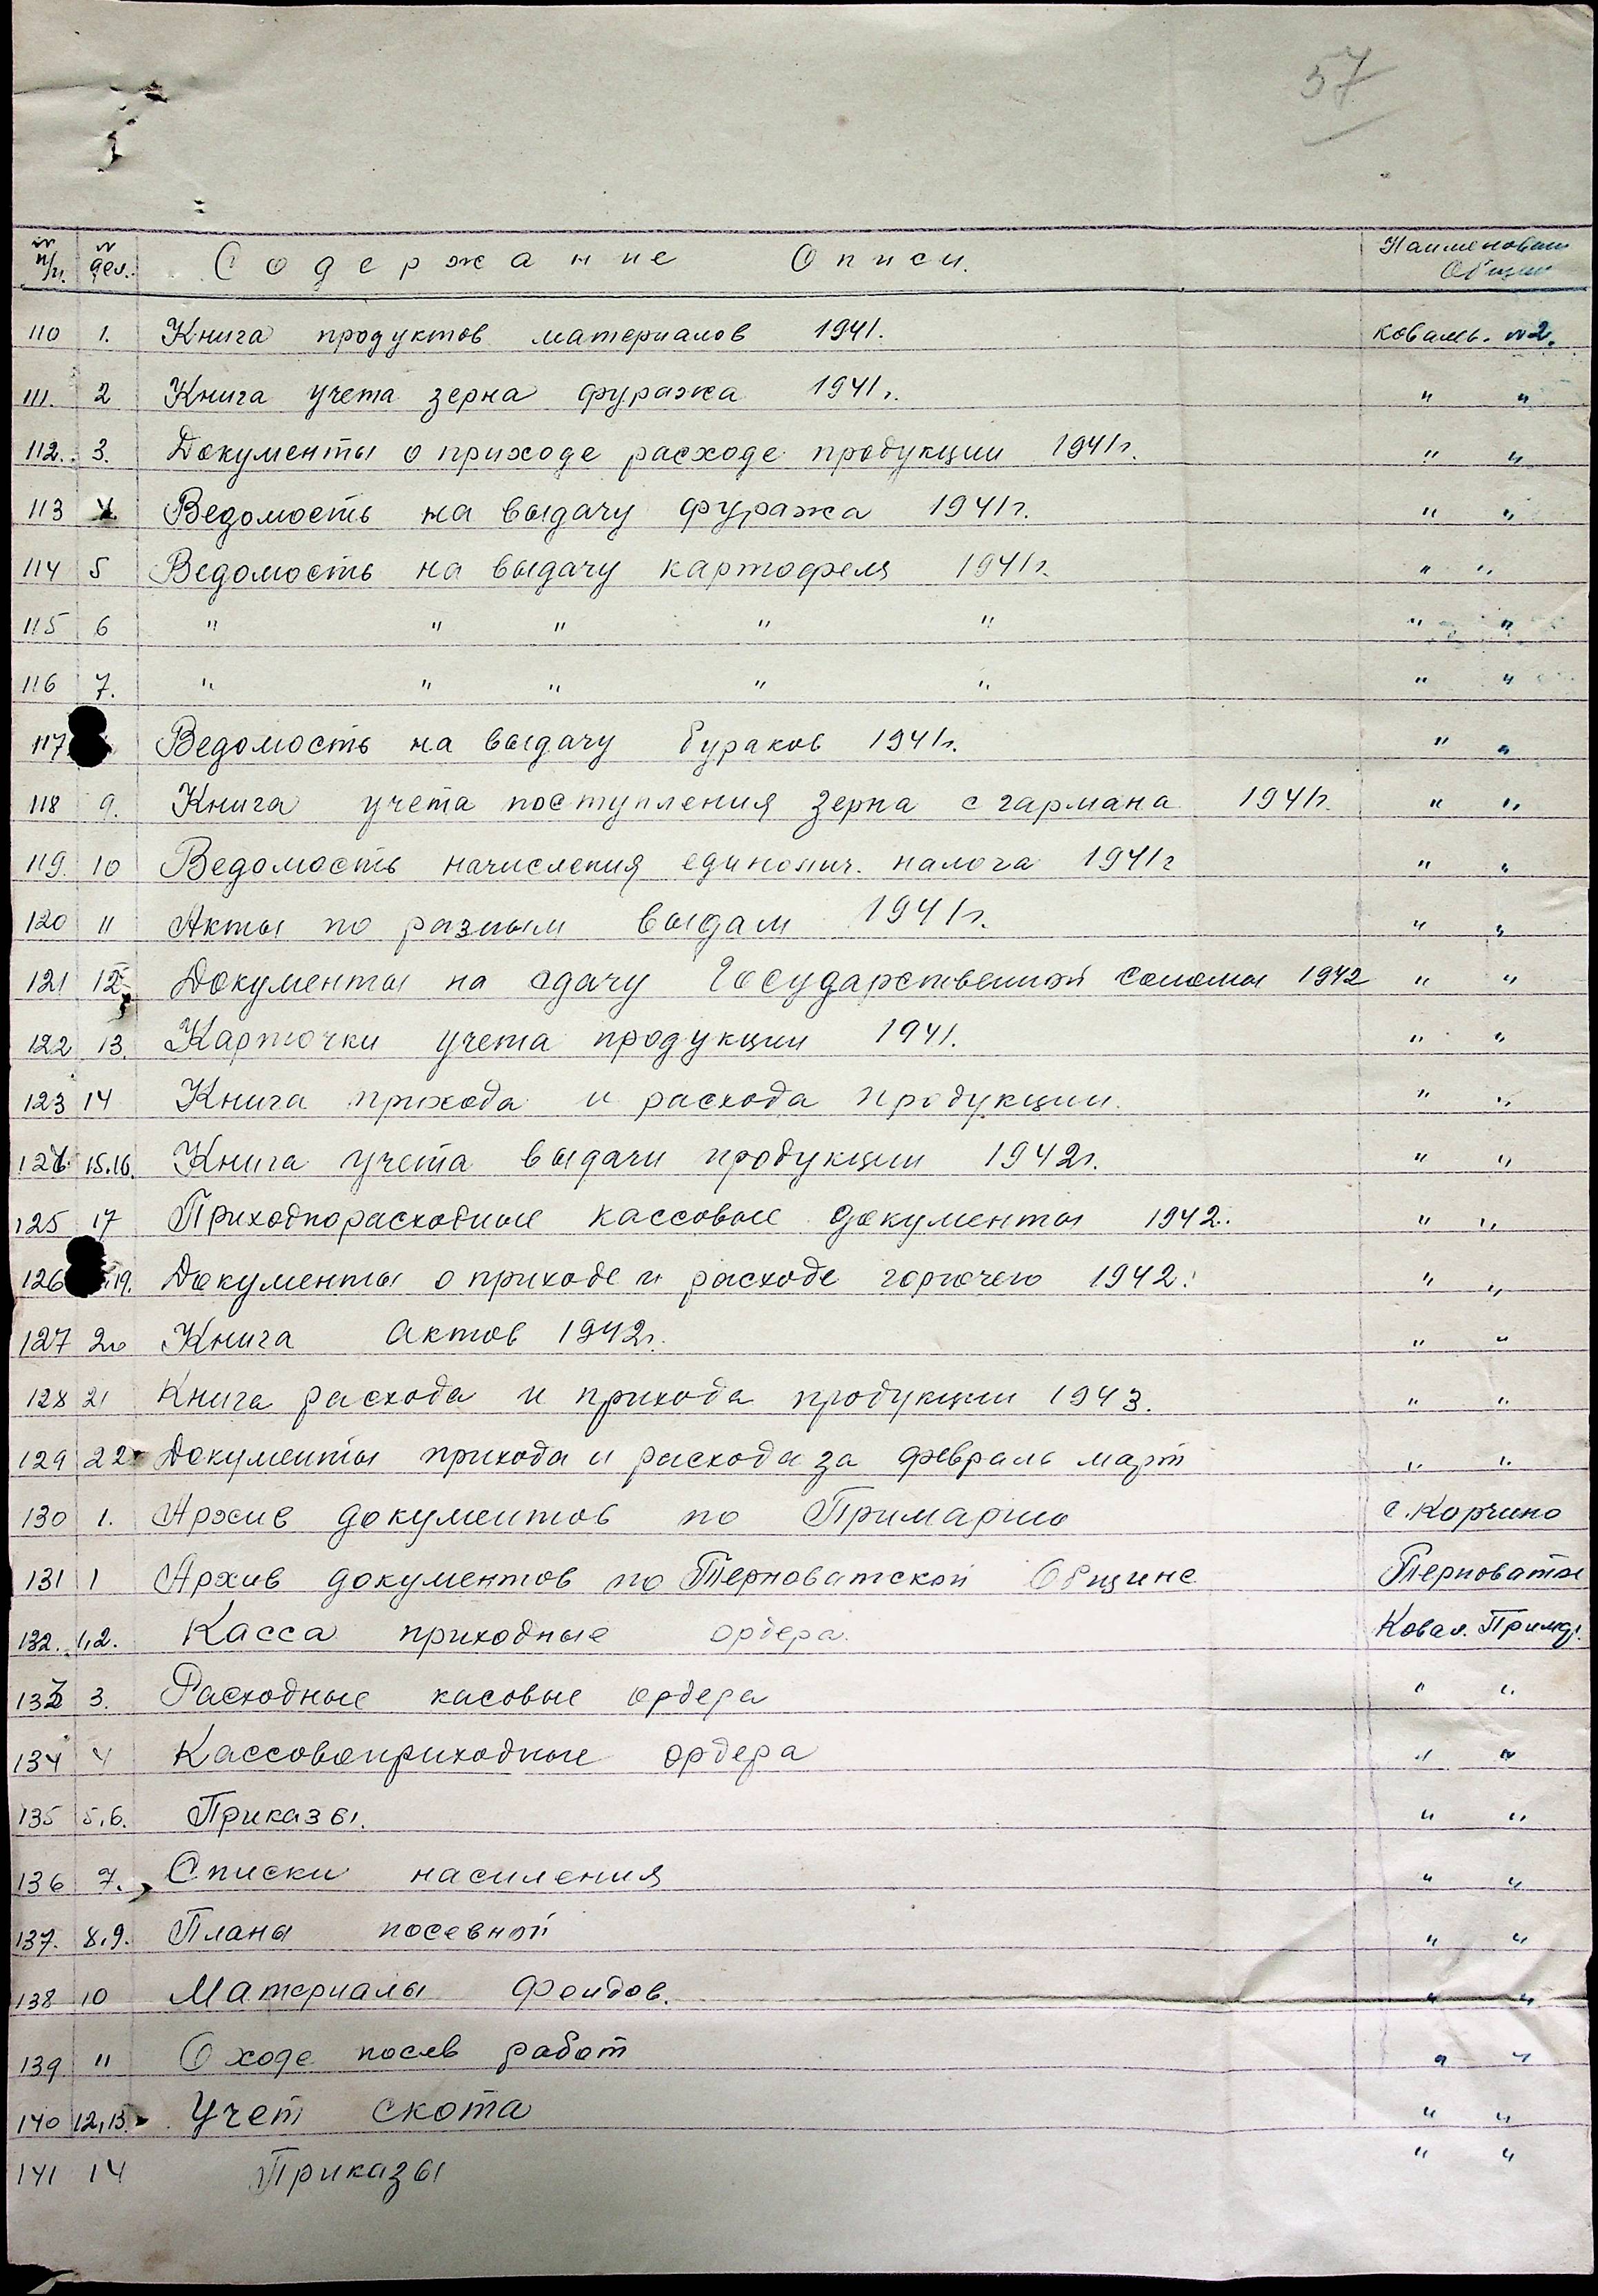 57
№ п/п. № дел. Содержание Описи. Наименован Общин
110 1. Книга продуктов материалов 1941. Коваль. №2.
111. 2 Книга учета зерна фуража 1941г. " "
112. 3. Документы о приходе расходе продукции 1941г. " "
113 4 Ведомость на выдачу фуража 1941г. " "
114 5 Ведомость на выдачу картофеля 1941г. " "
115 6 " " " " " " "
116 7. " " " " " " "
117 Ведомость на выдачу бураков 1941г. " "
118 9. Книга учета поступления зерна с гармана 1941г. " "
119. 10 Ведомость начисления единолич. налога 1941г " "
120 11 Акты по разным выдам 1941г. " "
121 12 Документы на сдачу Государственной соломы 1942 " "
122 13. Карточки учета продукции 1941. " "
123 14 Книга прихода и расхода продукции. " "
124 15.16. Книга учета выдачи продукции 1942г. " "
125 17 Приходнорасходные кассовые документы 1942. " "
126 19. Документы о приходе и расходе горючего 1942. " "
127 20 Книга Актов 1942г. " "
128 21 Книга расхода и прихода продукции 1943. " "
129 22 Документы прихода и расхода за февраль март " "
130 1. Архив документов по Примарию с. Корчино
131 1 Архив документов по Терноватской Общине Терноватое
132. 1,2. Касса приходные ордера. Ковал. Прим.
133 3. Расходные касовые ордера " "
134 4 Кассовоприходные ордера " "
135 5,6. Приказы. " "
136 7. Списки насиления " "
137. 8,9. Планы посевной " "
138 10 Материалы Фондов. " "
139 11 О ходе посев работ " "
140 12,13. Учет скота " "
141 14 Приказы " "